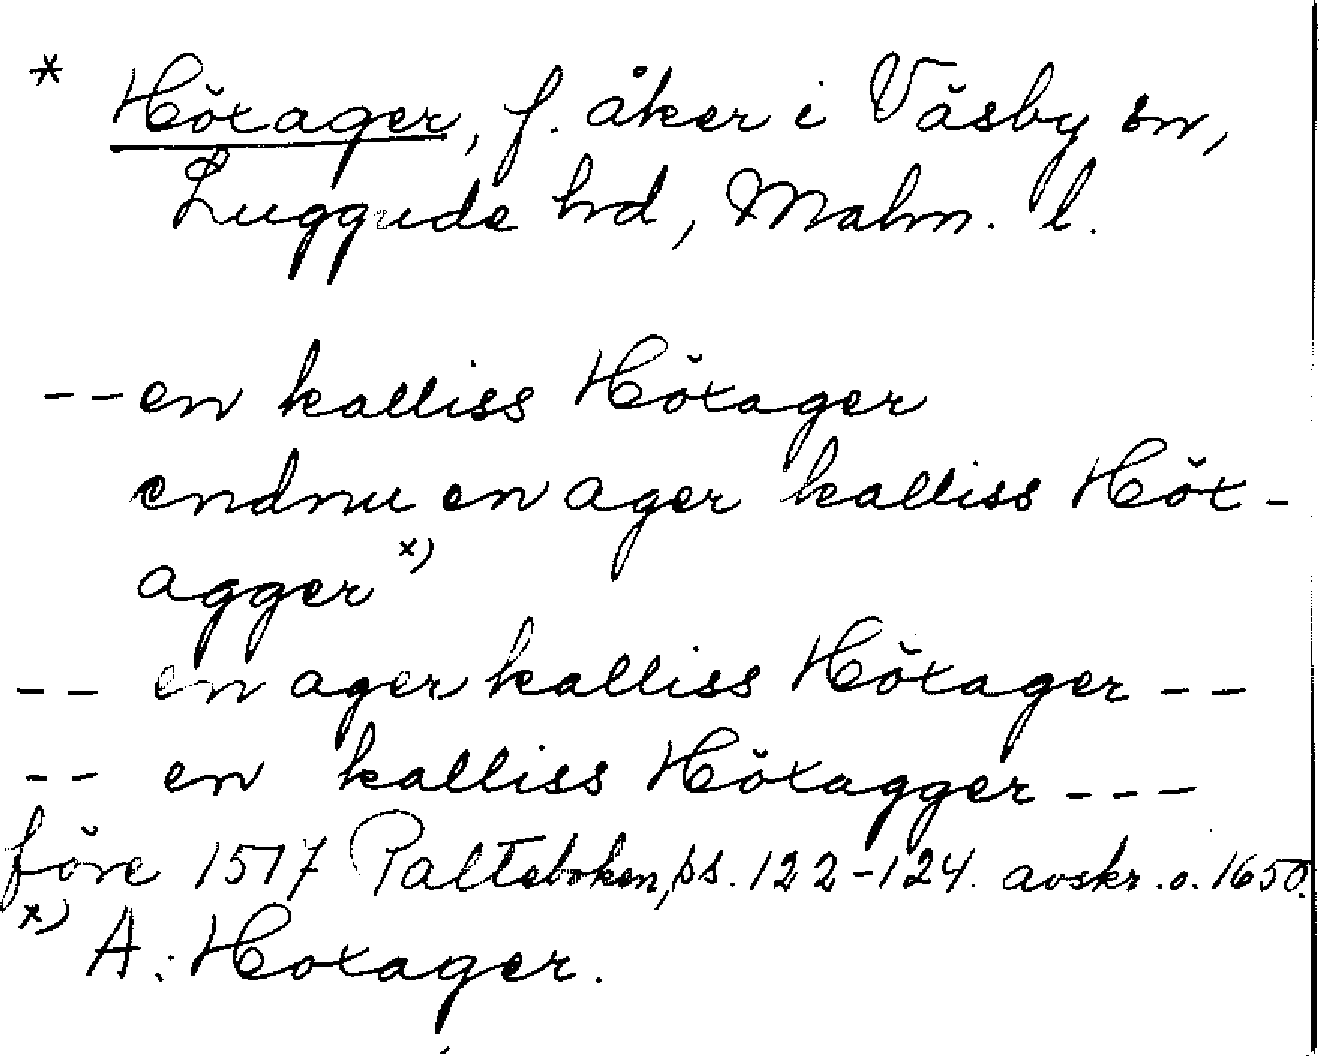 * Höxager, f. åker i Väsby sn,
Luggude hd, Malm. l.
-- en kalliss Höxager
endnu en ager kalliss Höx-
agger x)
-- en ager kalliss Höxager --
-- en kalliss Höxagger ---
före 1517 Palteboken, ss. 122-124. avskr. o. 1650.
x) A: Hoxager.